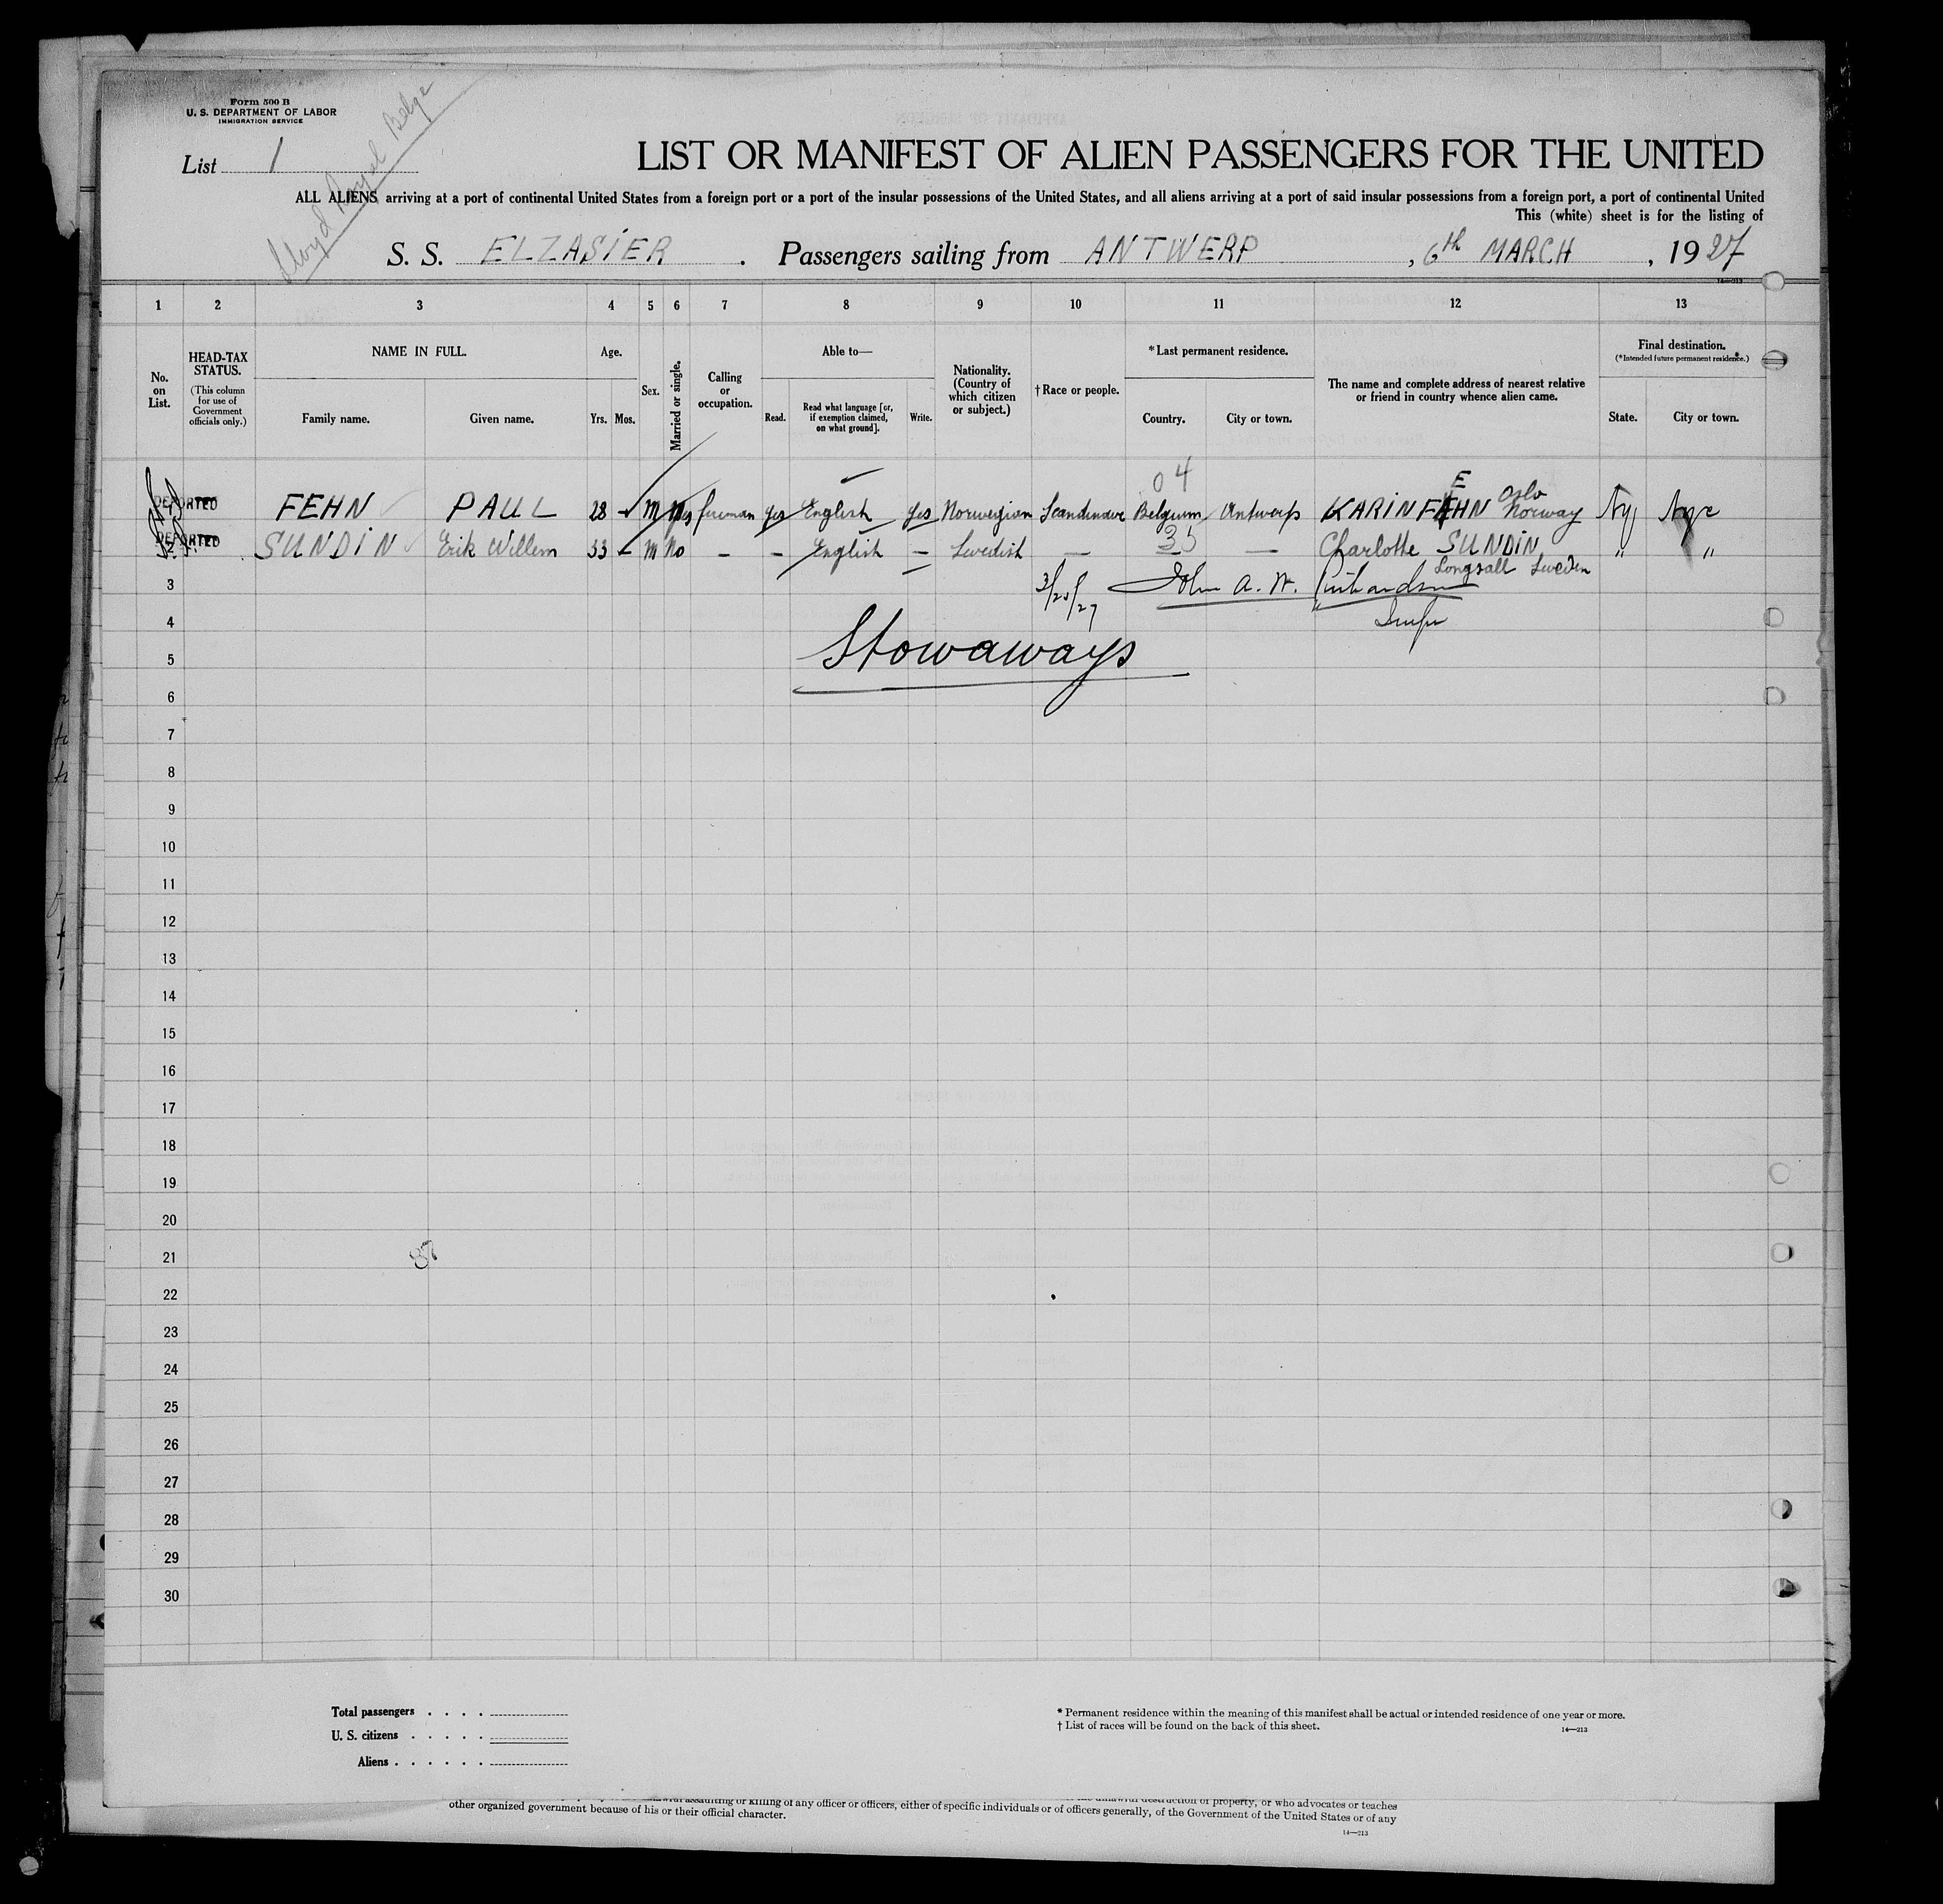 Form 500 B
U. S. DEPARTMENT OF LABOR
IMMIGRATION SERVICE
Lloyd Royal Belge
List 1
LIST OR MANIFEST OF ALIEN PASSENGERS FOR THE UNITED
ALL ALIENS arriving at a port of continental United States from a foreign port or a port of the insular possessions of the United States, and all aliens arriving at a port of said insular possessions from a foreign port, a port of continental United
This (white) sheet is for the listing of
S. S. ELZASIER . Passengers sailing from ANTWERP , 6th MARCH , 1927
14—213
1 2 3 4 5 6 7 8 9 10 11 12 13
No. on List.
HEAD-TAX STATUS.
(This column for use of Government officials only.)
NAME IN FULL.
Family name. Given name.
Age.
Yrs. Mos.
Sex.
Married or single.
Calling or occupation.
Able to—
Read. Read what language [or, if exemption claimed, on what ground]. Write.
Nationality. (Country of which citizen or subject.)
† Race or people.
* Last permanent residence.
Country. City or town.
The name and complete address of nearest relative or friend in country whence alien came.
Final destination.
(*Intended future permanent residence.)
State. City or town.
04
E
DEPORTED FEHN PAUL 28 M fireman yes English yes Norwegian Scandinav Belgium Antwerp KARIN FEHN Oslo Norway Ny Nyc
DEPORTED SUNDIN Erik Willem 33 M No – – English – Swedish — 35 — Charlotte SUNDIN " "
Sweden
3 3/20/27 John A. W. Richardson
4
Stowaways
5
6
7
8
9
10
11
12
13
14
15
16
17
18
19
20
21
22
23
24
25
26
27
28
29
30
Total passengers . . . .
U. S. citizens . . . . .
Aliens . . . . . .
* Permanent residence within the meaning of this manifest shall be actual or intended residence of one year or more.
† List of races will be found on the back of this sheet.
14—213
other organized government because of his or their official character.
assaulting or killing of any officer or officers, either of specific individuals or of officers generally, of the Government of the United States or of any
destruction of property, or who advocates or teaches
14—213